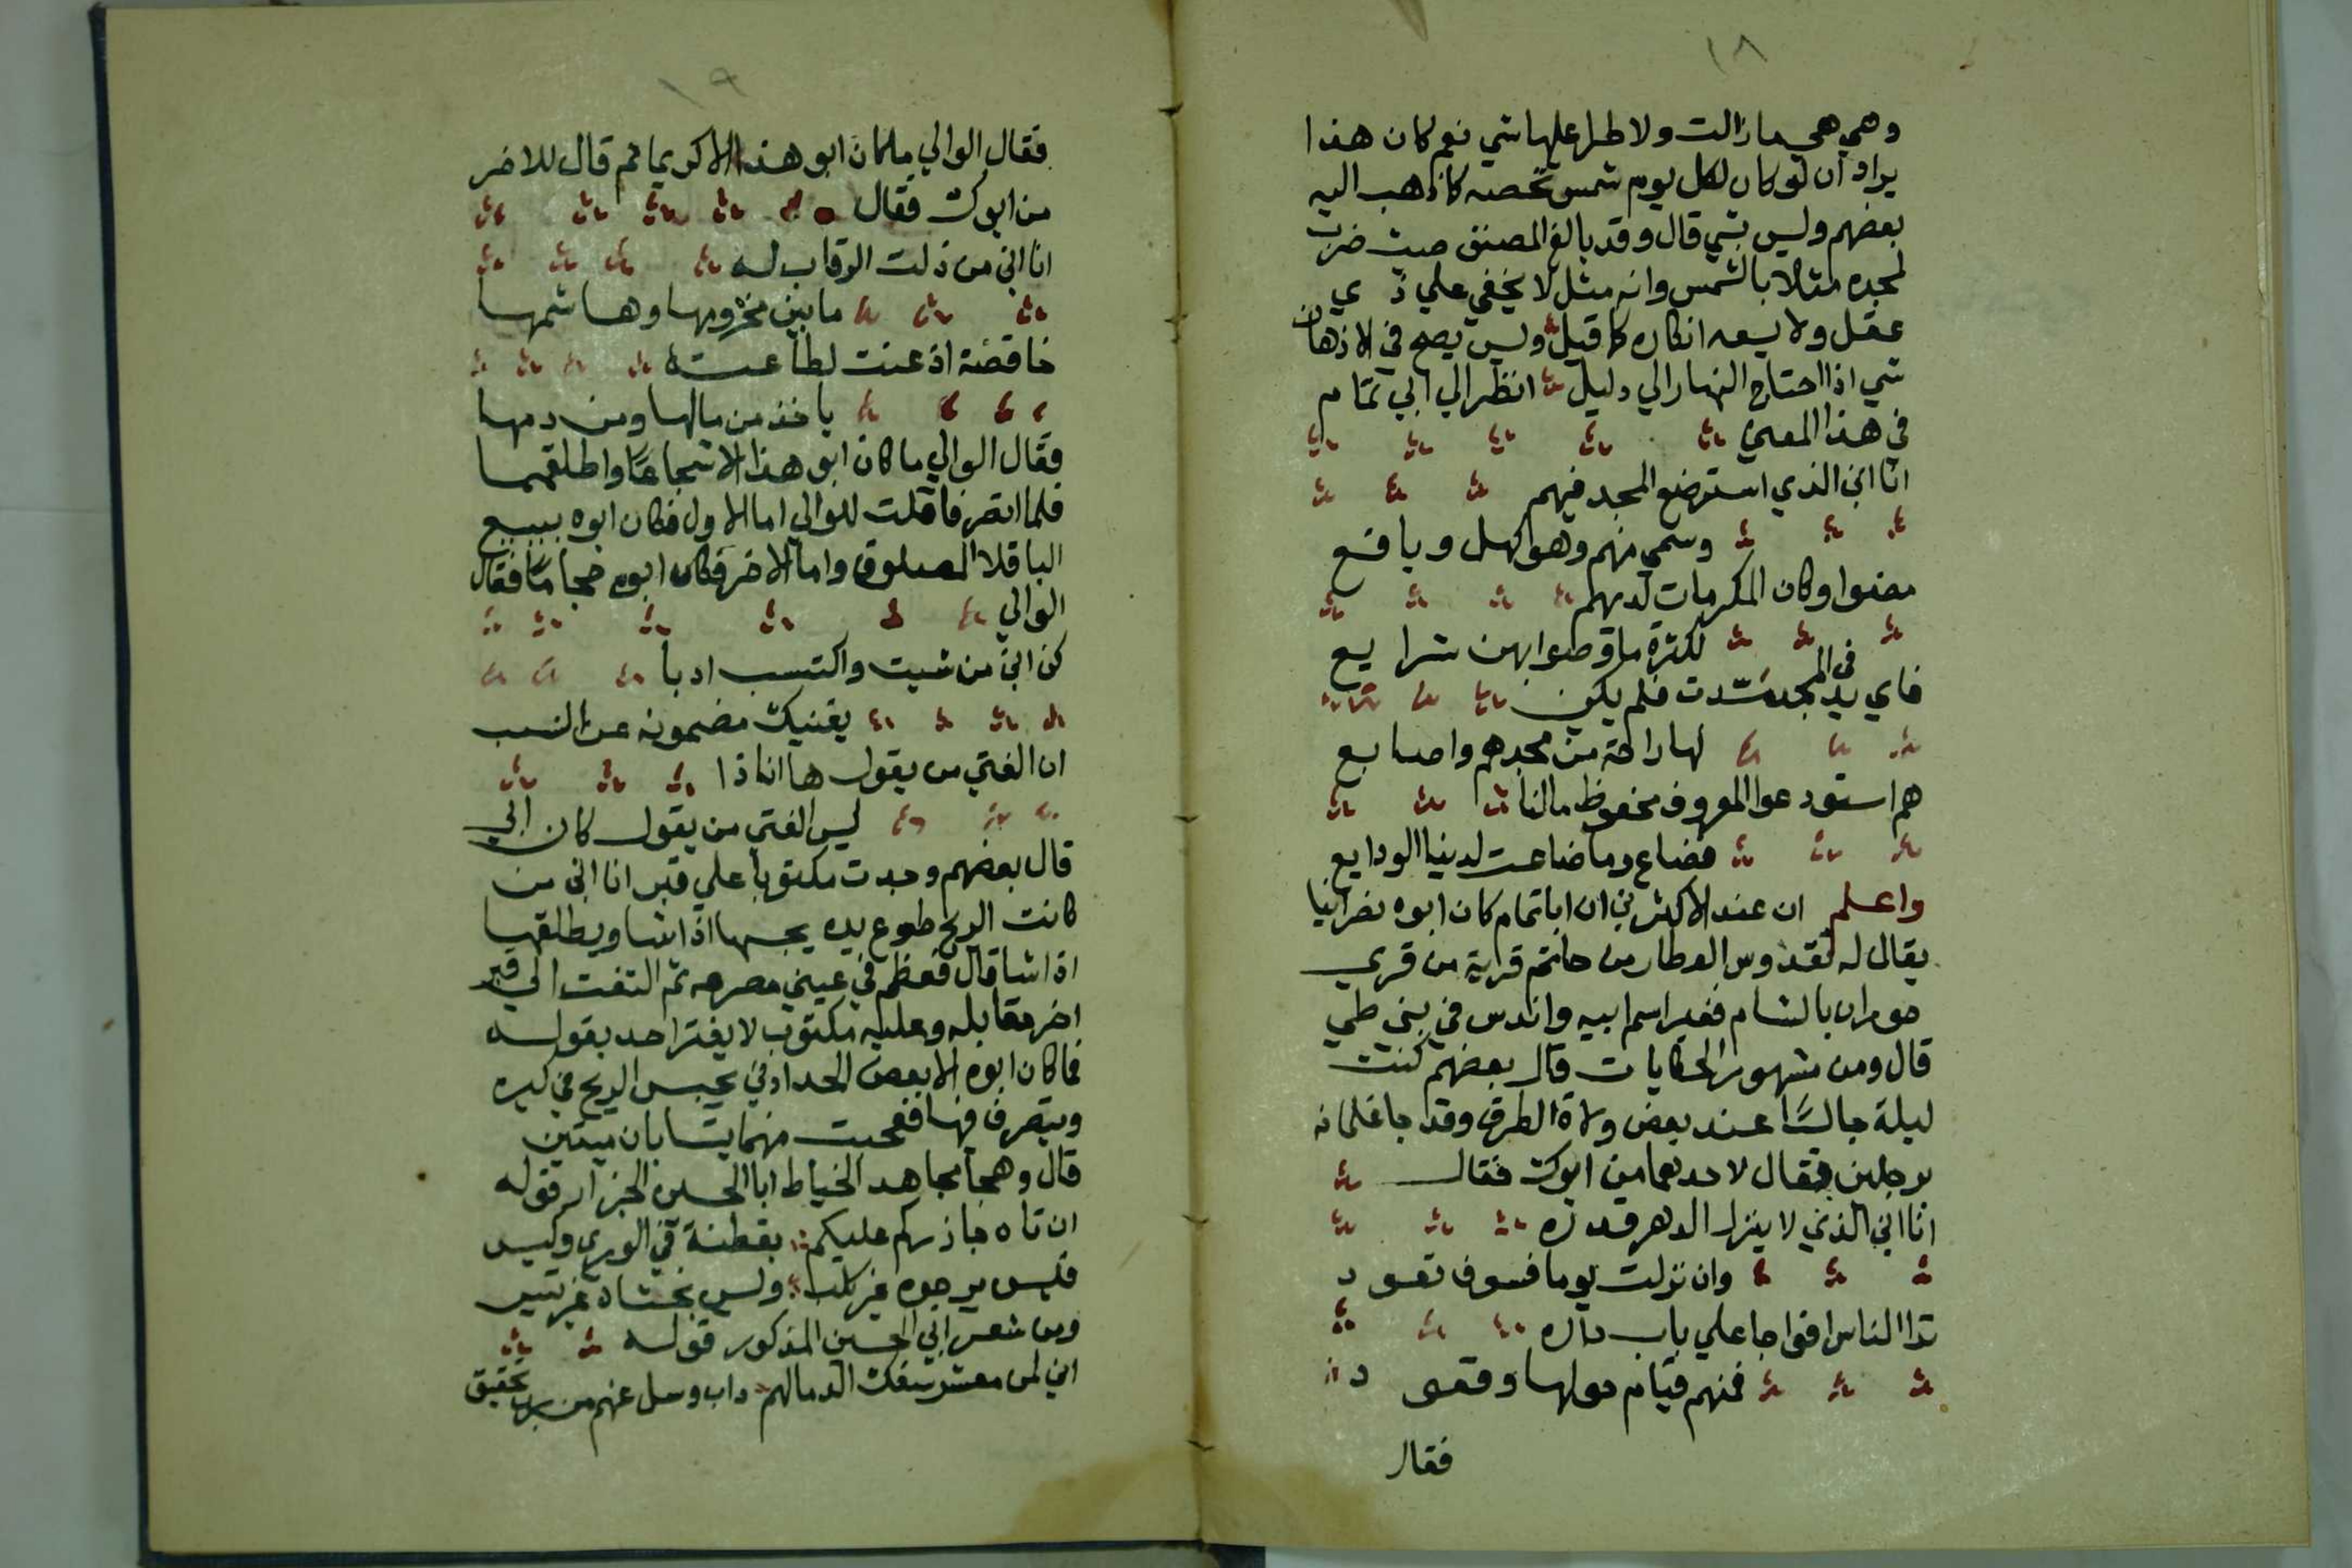 ١٨
وهي هي ما زالت ولا طرا عليها شي نعم كان هذا
يراد ان لو كان لكل يوم شمس تخصه كما ذهب اليه
بعضهم وليس بشي قال وقد بالغ المصنف حيث ضرب
لمجده مثلا بالشمس وانه مثل لا يخفي علي ذي
عقل ولا يسعه انكاره كما قيل وليس يصح في الاذهان
شي اذا احتاج النهار الي دليل انظر الي ابي تمام
في هذا المعني
انا ابن الذي استرضع المجد فيهم
وسمي منهم وهو كهل ويافع
مضوا وكان المكرمات لديهم
لكثرة ما وصوا بهن شرايع
فاي يد في المجد مدت فلم يكن
لها راحة من مجدهم واصابع
هم استودعوا المعروف محفوظ مالنا
فضاع وما ضاعت لدينا الودايع
واعلم ان عند الاكثرين ان ابا تمام كان ابوه نصرانيا
يقال له تقدوس العطار من جاسم قرية من قري
حوران بالشام فغير اسم ابيه واندس في بني طي
قال ومن مشهور الحكايات قال بعضهم كنت
ليلة جالسًا عند بعض ولاة الطرق وقد جا غلمانه
برجلين فقال لاحدهما من ابوك فقال
انا ابن الذي لا ينزل الدهر قدره
وان نزلت يوما فسوف تعود
ترا الناس افواجا علي باب داره
فمنهم قيام حولها وقعود
فقال
١٩
فقال الوالي ما كان ابو هذا الا كريما ثم قال للاخر
من ابوك فقال
انا ابن من ذلت الرقاب له
ما بين مخزومها وهاشمها
خاقضة اذعنت لطاعته
ياخذ من مالها ومن دمها
فقال الوالي ما كان ابو هذا الا شجاعًا واطلقهما
فلما انصرفا قلت للوالي اما الاول فكان ابوه يبيع
الباقلا المصلوق واما الاخر فكان ابوه حجامًا فقال
الوالي
كن ابن من شيت واكتسب ادبا
يغنيك مضمونه عن النسب
ان الفتي من يقول ها انا ذا
ليس الفتي من يقول كان ابي
قال بعضهم وجدت مكتوبا علي قبر انا ابن من
كانت الريح طوع يده يحبسها اذا شا ويطلقها
اذا شا قال فعظم في عيني مصرعه ثم التفت الي قبر
اخر مقابله وعليه مكتوب لا يغتر احد بقوله
فما كان ابوه الا بعض الحدادين يحبس الريح في كيره
ويتصرف فيها فعجبت منهما يتسابان ميتين
قال وهجا مجاهد الخياط ابا الحسن الجزار قوله
ان تاه جازركم عليكم بفطنة في الوري وكيس
فليس يرجوه غير كلب وليس يخشاه غير تيس
ومن شعر ابي الحسين المذكور قوله
اني لمن معشر سفك الدما لهم داب وسل عنهم من تحقيق